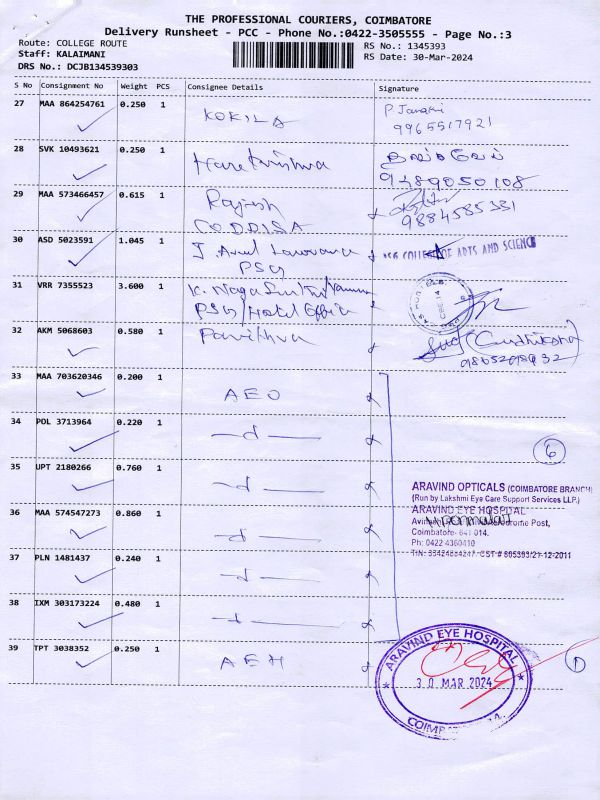 THE PROFESSIONAL COURIERS, COIMBATORE
Delivery Runsheet - PCC - Phone No.:0422-3505555 - Page No.:3
Route: COLLEGE ROUTE
RS No.: 1345393
Staff: KALAIMANI
RS Date: 30-Mar-2024
DRS No.: DCJB134539303
S No Consignment No Weight PCS Consignee Details Signature
27 MAA 864254761 0.250 1 KOKILA P Janaki
9965517921
28 SVK 10493621 0.250 1 Hare Krishna
9489050108
29 MAA 573466457 0.615 1 Rajesh
CODDISA 9884585331
30 ASD 5023591 1.045 1 J. Arul Lawrance PSG COLLEGE OF ARTS AND SCIENCE
PSG
31 VRR 7355523 3.600 1 K. Naga
PSG/Hostel Office
32 AKM 5068603 0.580 1 Pavithra
33 MAA 703620346 0.200 1 AEO
34 POL 3713964 0.220 1 —d—
6
35 UPT 2180266 0.760 1 —d—
ARAVIND OPTICALS (COIMBATORE BRANCH)
(Run by Lakshmi Eye Care Support Services LLP.)
36 MAA 574547273 0.860 1 —d— ARAVIND EYE HOSPITAL
Post,
Coimbatore- 641 014.
Ph: 0422 4360410
37 PLN 1481437 0.240 1 —d—
38 IXM 303173224 0.480 1 —d—
39 TPT 3038352 0.250 1 AEH
ARAVIND EYE HOSPITAL
30 MAR 2024
1